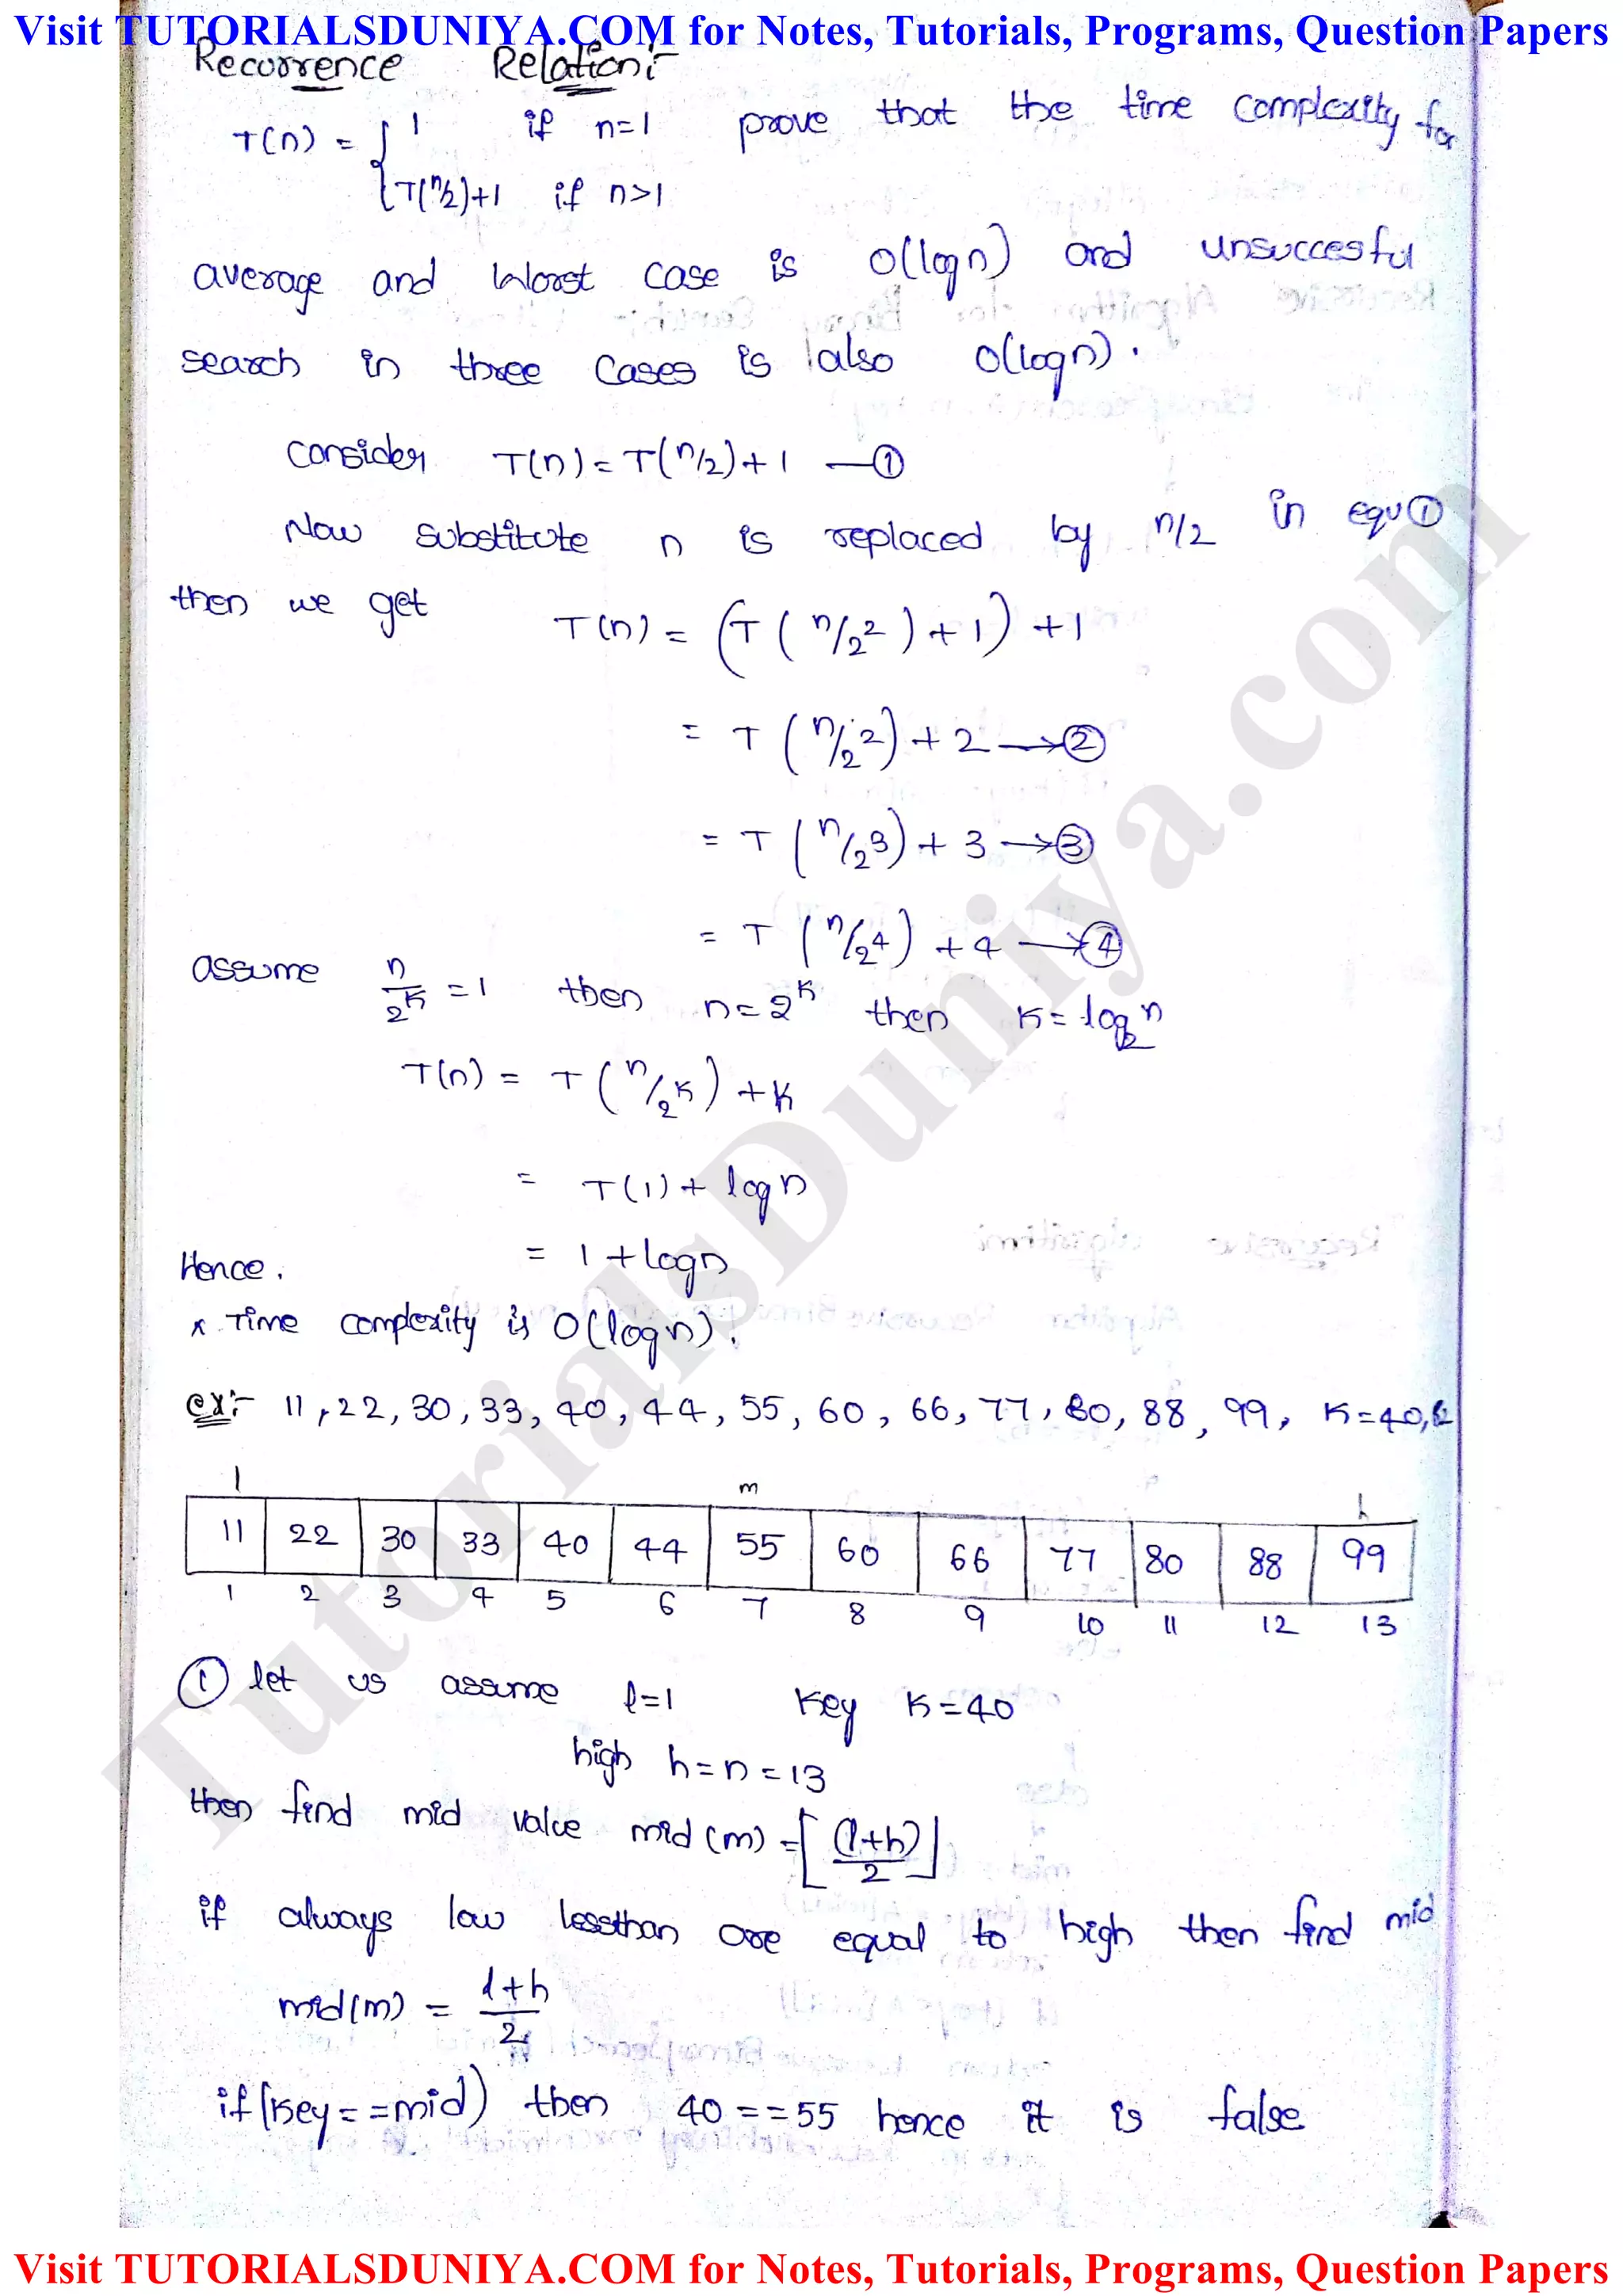 Visit TUTORIALSDUNIYA.COM for Notes, Tutorials, Programs, Question Papers
Recurrence Relation:-
T(n) = { 1 if n=1 prove that the time complexity for
T(n/2)+1 if n>1
average and worst case is O(log n) and unsuccesful
search in three cases is also O(log n).
consider T(n) = T(n/2)+1 —①
Now substitute n is replaced by n/2 in equ①
then we get T(n) = (T(n/2²)+1)+1
= T(n/2²)+2 →②
= T(n/2³)+3 →③
= T(n/2⁴)+4 →④
assume n/2ᴷ = 1 then n=2ᴷ then K = log₂n
T(n) = T(n/2ᴷ)+K
= T(1)+ log n
= 1+log n
Hence.
* Time complexity is O(log n).
ex:- 11, 22, 30, 33, 40, 44, 55, 60, 66, 77, 80, 88, 99, K=40,
l m h
11 22 30 33 40 44 55 60 66 77 80 88 99
1 2 3 4 5 6 7 8 9 10 11 12 13
① let us assume l=1 Key K=40
high h=n=13
then find mid value mid(m) = ⌊(l+h)/2⌋
if always low lessthan ore equal to high then find mid
mid(m) = l+h/2
if(key==mid) then 40==55 hence it is false
TutorialsDuniya.com
Visit TUTORIALSDUNIYA.COM for Notes, Tutorials, Programs, Question Papers